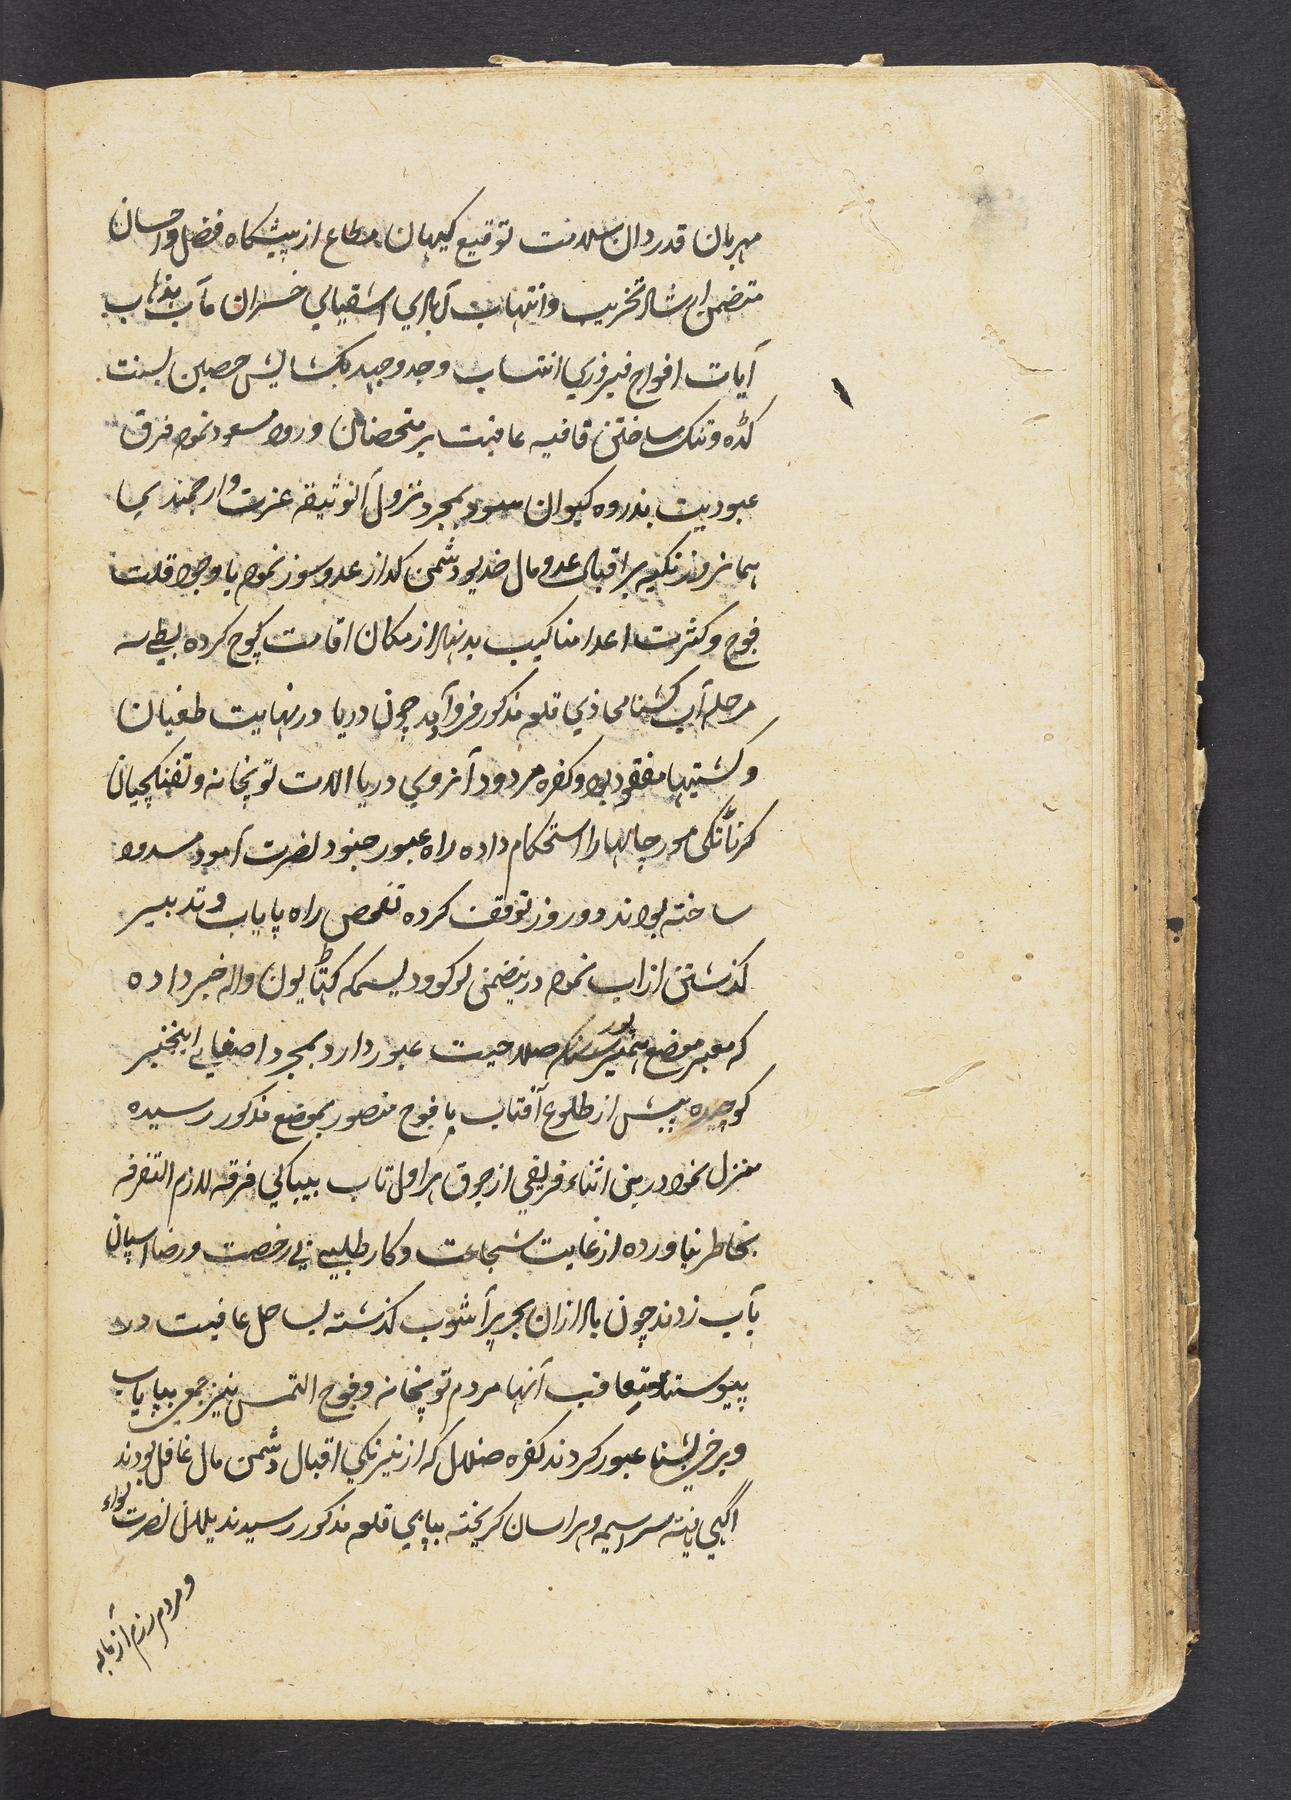 مهربان قدردان سلامت توقیع کیهان مطاع از پیشکاه فضل و احسان
متضمن ارشاد تخریب و انتهاب آبادی اشقیای خسران مآب بذهاب
آیات افواج فیروزی انتساب و جد و جهد بکشایش حصین بسنت
کده و تنک ساختن قافیه عافیت بر متحصنان ورود مسعود نموده فرق
عبودیت بذروه کیوان سود بمجرد نزول آنوثیقه عزت و ارجمندی
همانروز تکیه بر اقبال عدو مال خدیو دشمن کداز عدو سوز نموده با وجود قلت
فوج و کثرت اعدا مناکیب بدنهاد از مکان اقامت کوچ کرده بطی سه
مرحله آب کشنا محاذی قلعه مذکور فرود آید چون دریا در نهایت طغیان
و کشتیها مفقود بود و کفره مردود آنروی دریا الات توپخانه و تفنکچیان
کرناٹکی مورچالها را استحکام داده راه عبور جنود نصرت آمود مسدود
ساخته بودند دو روز توقف کرده تفحص راه پایاب و تدبیر
کذشتن از اب نموده درینضمن لوکو دیسمکه کهٹایون واله خبر داده
که معبر موضع صلاحیت عبور دارد بمجرد اصغای اینخبر
کوچیده پیش از طلوع آفتاب با فوج منصور بموضع مذکور رسیده
منزل نمود درین اثناء فریقی از جوق هراول تاب بیباکی فرقه لازم التفرقه
بخاطر نیاورده از غایت شجاعت و کار طلبی بی رخصت و رضا اسپان
بآب زدند چون باد ازان بحر پر آشوب کذشته بساحل عافیت در
پیوستند متعاقب آنها مردم توپخانه و فوج التمش نیز جمعی بپایاب
و برخی بشنا عبور کردند کفره ضلال که از نیرنکی اقبال دشمن مال غافل بودند
اکهی یافته سراسیمه و هراسان کریخته بپای قلعه مذکور رسیدند یلان نصرت لواء
و مردم رزم آزمای